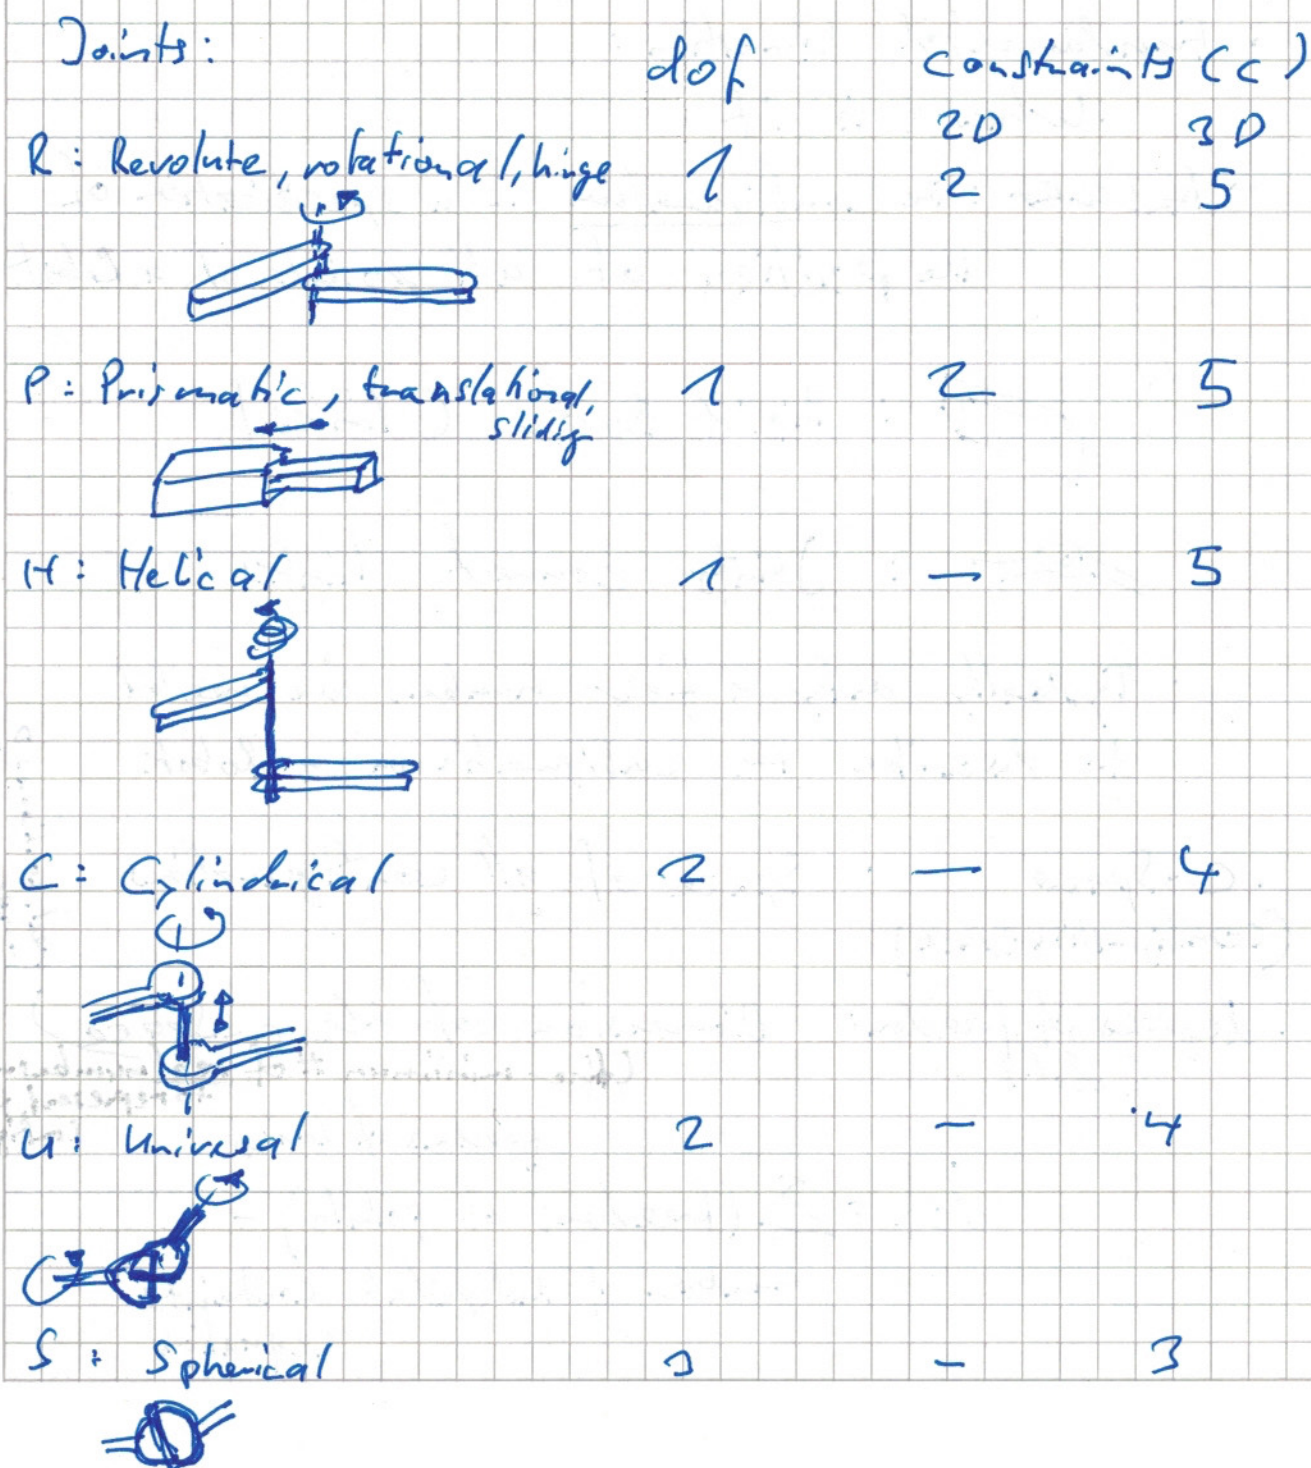 Joints: dof constraints (c)
2D 3D
R: Revolute, rotational, hinge 1 2 5
P: Prismatic, translational, 1 2 5
sliding
H: Helical 1 — 5
C: Cylindrical 2 — 4
U: Universal 2 - 4
S: Spherical 3 - 3